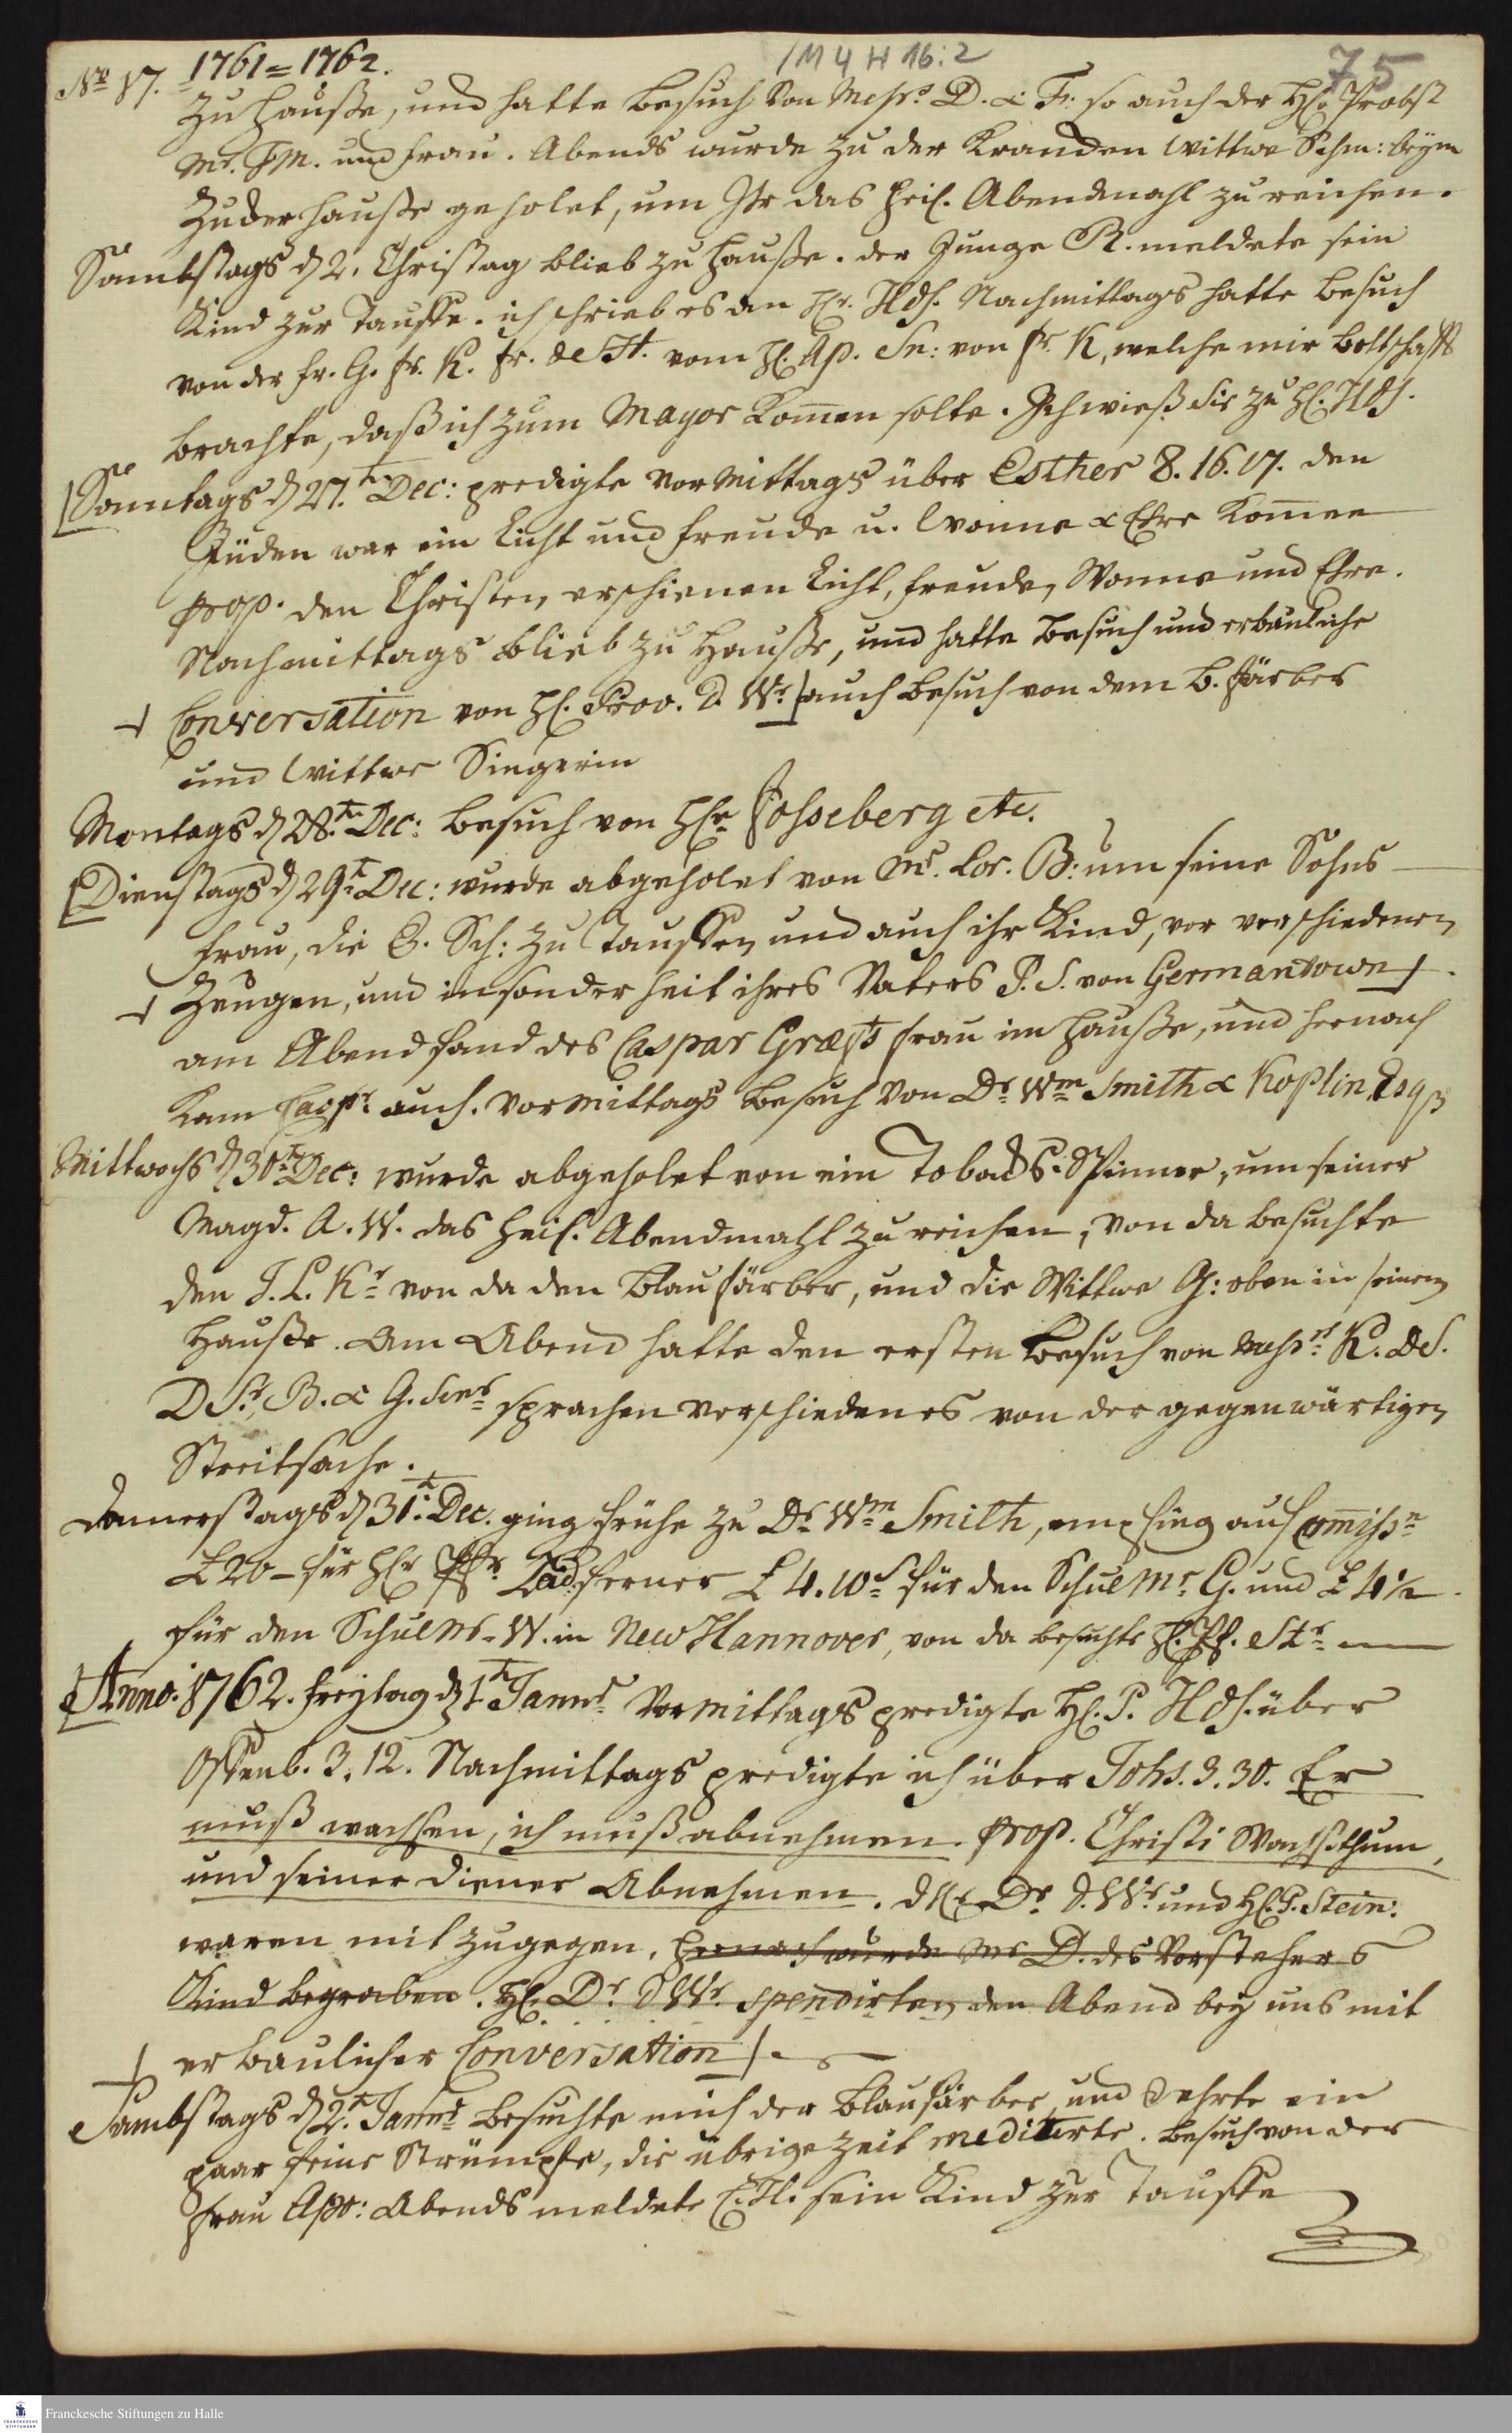 No 17. 1761=1762.
/M 4 H 16:2
75
zu Hausse, und hatte Besuch von Messrs D. & F. so auch der H. Probst
Mr. und Frau. Abends wurde zu der Krancken Wittwe Schm: beym
Zuckerhausse geholet, um Ihr das heil. Abendmahl zu reichen.
Sambstags d 2. Christag blieb zu Hausse. der Junge R. meldete sein
Kind zur Tauffe. ich schrieb es an Hr. Hdf. Nachmittags hatte Besuch
von der fr. G. fr. K. fr. de H. vom H. Ap. Sn: von fr. K, welche mir Bottschafft
brachte, daß ich zum Mayor kom̅en solte. Ich wieß sie zu H. Hdf.
Sonntags d 27.t Dec: predigte vormittags über Esther 8. 16. 17. den
Jüden war ein Licht und Freude u. Wonne & Ehre kom̅en
prop. den Christen erschienen Licht, Freude, Wonne und Ehre.
Nachmittags blieb zu Hausse, und hatte Besuch und erbauliche
Conversation von H. Prov. D. Wr. auch Besuch von dem B. Färber
und Wittwe Singerin
Montags d 28.t Dec: Besuch von Hr Josseberg etc.
Dienstags d 29t Dec: wurde abgeholet von Mr. Lor. B: um seine Sohns
Frau, die E. Sch: zu Tauffen und auch ihr Kind, vor verschiedenen
Zeugen, und insonderheit ihres Vaters P. S. von Germantown.
am Abend fand des Caspar Græfs Frau im Hausse, und hernach
kam Caspr: auch. Vormittags Besuch von Dr Wm Smith & Koplin Esqr
Mittwochs d 30t Dec: wurde abgeholet von ein Tobacks-Spinner, um seiner
Magd. A. W. das heil. Abendmahl zu reichen, von da besuchte
den J. L. Kr von da den Blaufärber, und die Wittwe G: oben in seinem
Hausse. Am Abend hatte den ersten Besuch von Messrs K. de S.
D Sr, B. & G. Senr sprachen verschiedenes von der gegenwärtigen
Streitsache.
Donnerstags d 31t. Dec. ging frühe zu Dr Wm Smith, empfing auf Com̅issn
£ 20 – für Hr Pfr ferner £ 4. 10s für den Schulmr G. und £ 4½
für den Schulmr. W. in New Hannover, von da besuchte H. Pf. Str
Anno. 1762. Freytag d 1t Januar Vormittags predigte H. P. Hdf. über
Offenb. 3. 12. Nachmittags predigte ich über Johs. 3. 30. Er
muß wachsen, ich muß abnehmen. prop. Christi Wachsthum,
und seiner Diener Abnehmen. d H. Dr d. Wr. und H. P. Stein:
waren mit zugegen. Hernach wurde Mr D. des Vorstehers
Kind begraben. H. Dr d Wr. spendirten den Abend bey uns mit
erbaulicher Conversation.
Sambstags d 2t. Januar besuchte mich der Blaufärber und verehrte ein
paar feine Strümpfe, die übrige Zeit meditirte. Besuch von der
Frau Apo: Abends meldete E. H. sein Kind zur Tauffe
Franckesche Stiftungen zu Halle